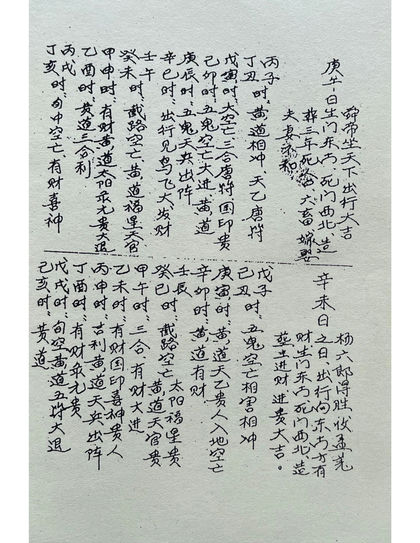 舜帝坐天下出行大吉
庚午日生门东南死门西北造
葬三年死六畜嫁娶
夫妻不和
丙子时
丁丑时黄道相冲天乙唐符
戊寅时大空亡三合唐符国印贵
己卯时五鬼空亡大进黄道
庚辰时五鬼天兵出阵
辛巳时出行见鸟飞大发财
壬午
癸未时截路空亡黄道福星天官
甲申时有财黄道太阳来元贵大退
乙酉时黄道三合利
丙戌
丁亥时旬中空亡有财喜神
辛未日
杨六郎得胜收孟羌
之日出行向东南方有
财生门东南死门西北造
葬生进财进贵大吉。
戊子时
己丑五鬼空亡相害相冲
庚寅时黄道天乙贵人入地空亡
辛卯时黄道有财
壬辰太阳福星贵
癸巳时截路空亡黄道天官贵
甲午时三合有财大进
乙未时有财国印喜神贵人
丙申时吉利黄道天兵出阵
丁酉时有财来元贵
戊戌时旬空黄道五符大退
己亥时黄道